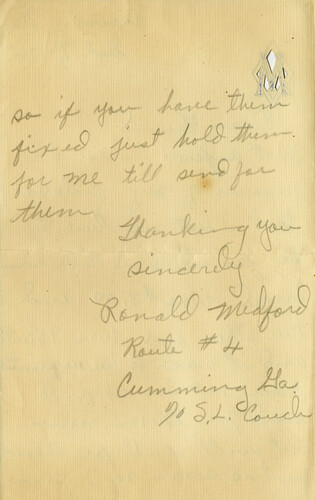 M
so if you have them
fixed just hold them
for me till send for
them
Thanking you
sincerely
Ronald Medford
Route #4
Cumming Ga.
% S.L. Couch